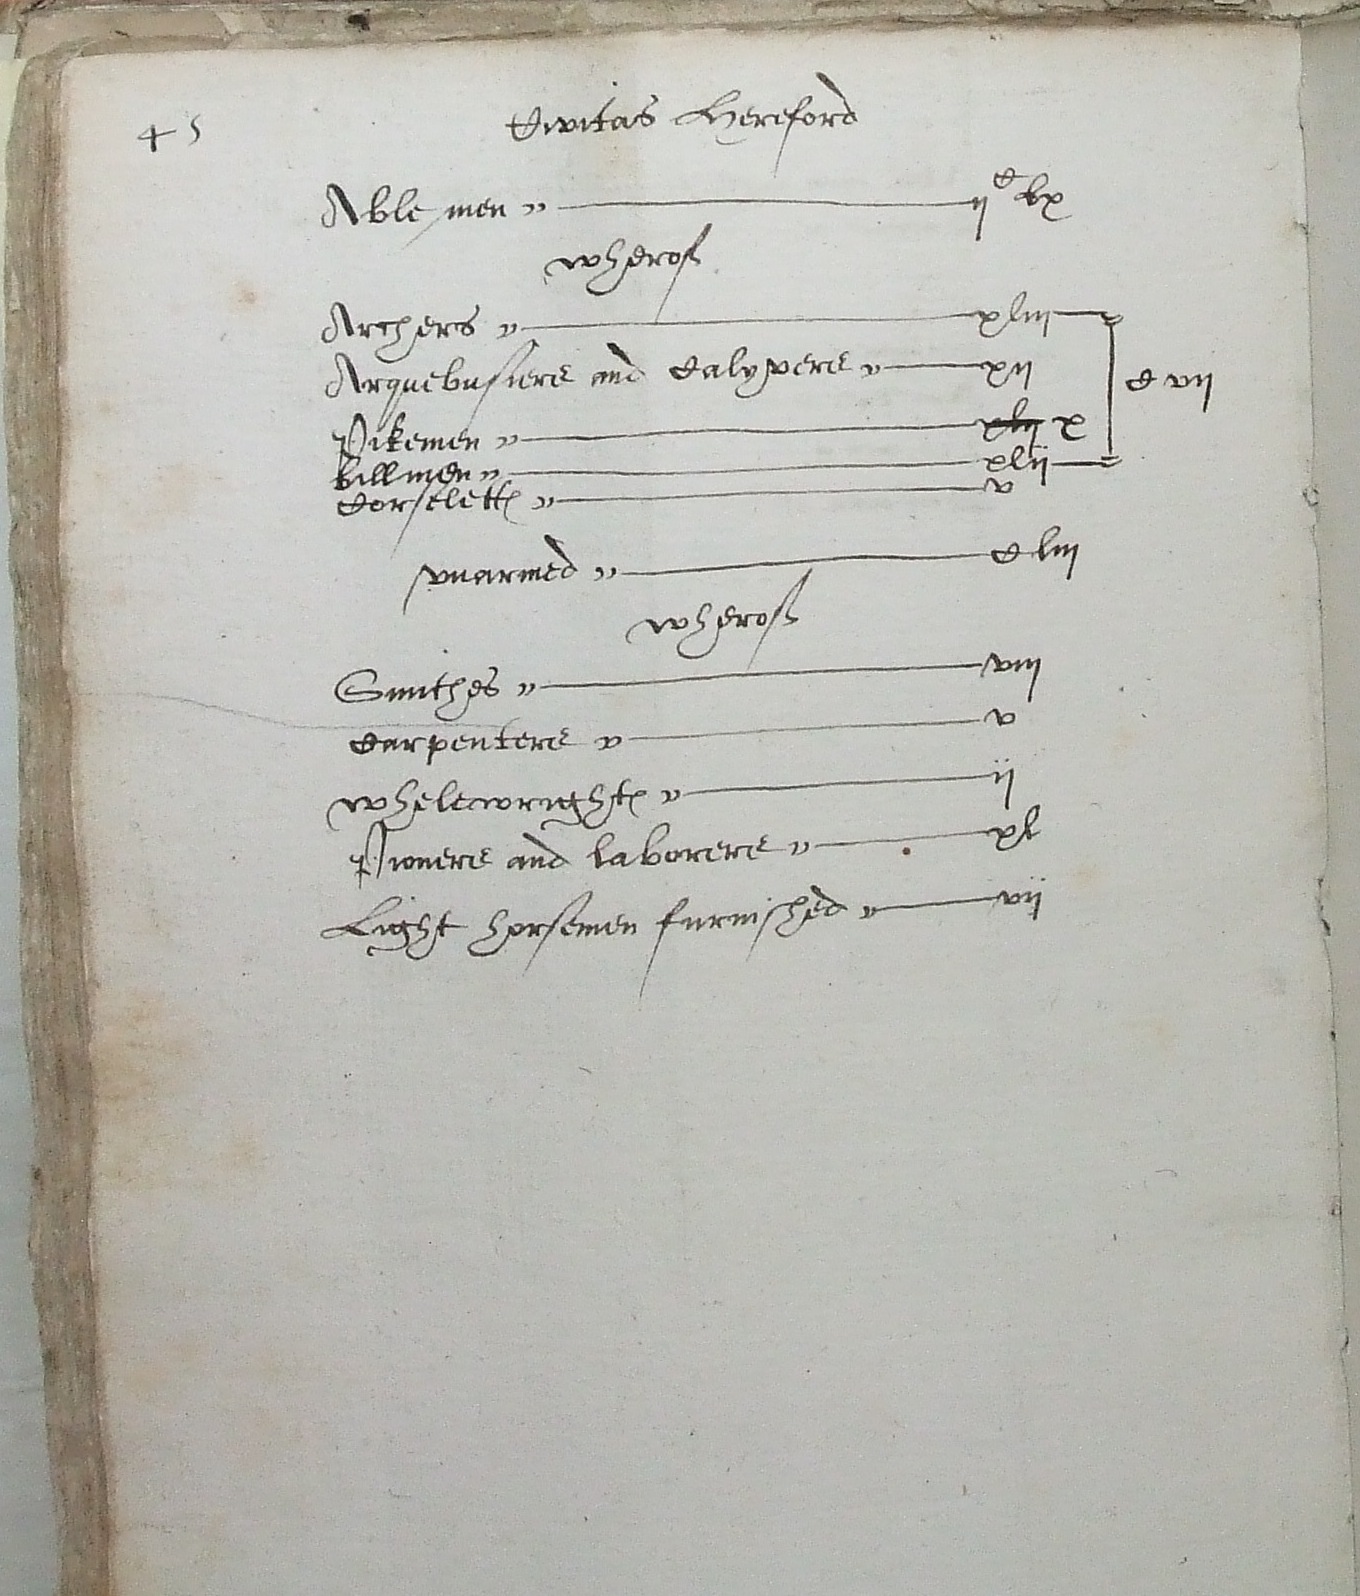 45 Civitas Hereford
Able men ,, ii C lx
wherof
Archers ,, xliij
Arquebusiers and Calyvers ,, xij C vij
Pikemen ,, xlij x
billmen ,, xlij
Corselettes ,, v
vnarmed ,, C liij
wherof
Smithes ,, viij
Carpenters ,, v
whelewrightes ,, ij
Pioners and laborers ,, xl
Light horsemen furnished ,, vij